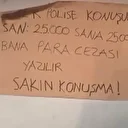 EK POLİSE KONUŞU
SAN: 25.000 SANA 250
BANA PARA CEZASI
YAZILIR
SAKIN KONUŞMA!